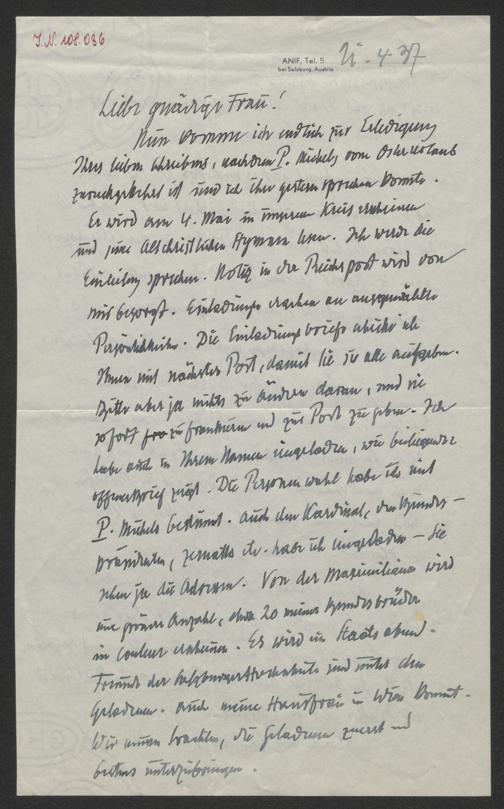 J.N. 108.036
ANIF, Tel. 5
bei Salzburg, Austria
4 37
Liebe gnädige Frau!
Nun komme ich endlich zur Erledigung
Ihres lieben Schreibens, nachdem P. Michels vom Osterurlaub
zurückgekehrt ist und ich ihn gestern sprechen konnte.
Er wird am 4. Mai in unserem Kreis erscheinen
und seine Altchristlichen Hymnen lesen. Ich werde die
Einleitung sprechen. Notiz in der Reichspost wird von
mir besorgt. Einladungen ergehen an ausgewählte
Persönlichkeiten. Die Einladungsbriefe schicke ich
Ihnen mit nächster Post, damit Sie sie alle aufgeben.
Bitte aber ja nichts zu ändern daran, und sie
sofort zu frankieren und zur Post zu geben. Ich
habe auch in Ihrem Namen eingeladen, wie beiliegender
offener Brief zeigt. Die Personenwahl habe ich mit
P. Michels bestimmt. Auch den Kardinal, den Bundes-
präsidenten, Zernatto etc. habe ich eingeladen – Sie
sehen ja die Adressen. Von der Maximiliana wird
eine grössere Anzahl, etwa 20 meiner Bundesbrüder
in Couleur erscheinen. Es wird ein Staatsabend.
Freunde der Salzburger Hochschule sind unter den
Geladenen. Auch meine Hausfrau in Wien kommt.
Wir müssen trachten, die Geladenen zuerst und
bestens unterzubringen.